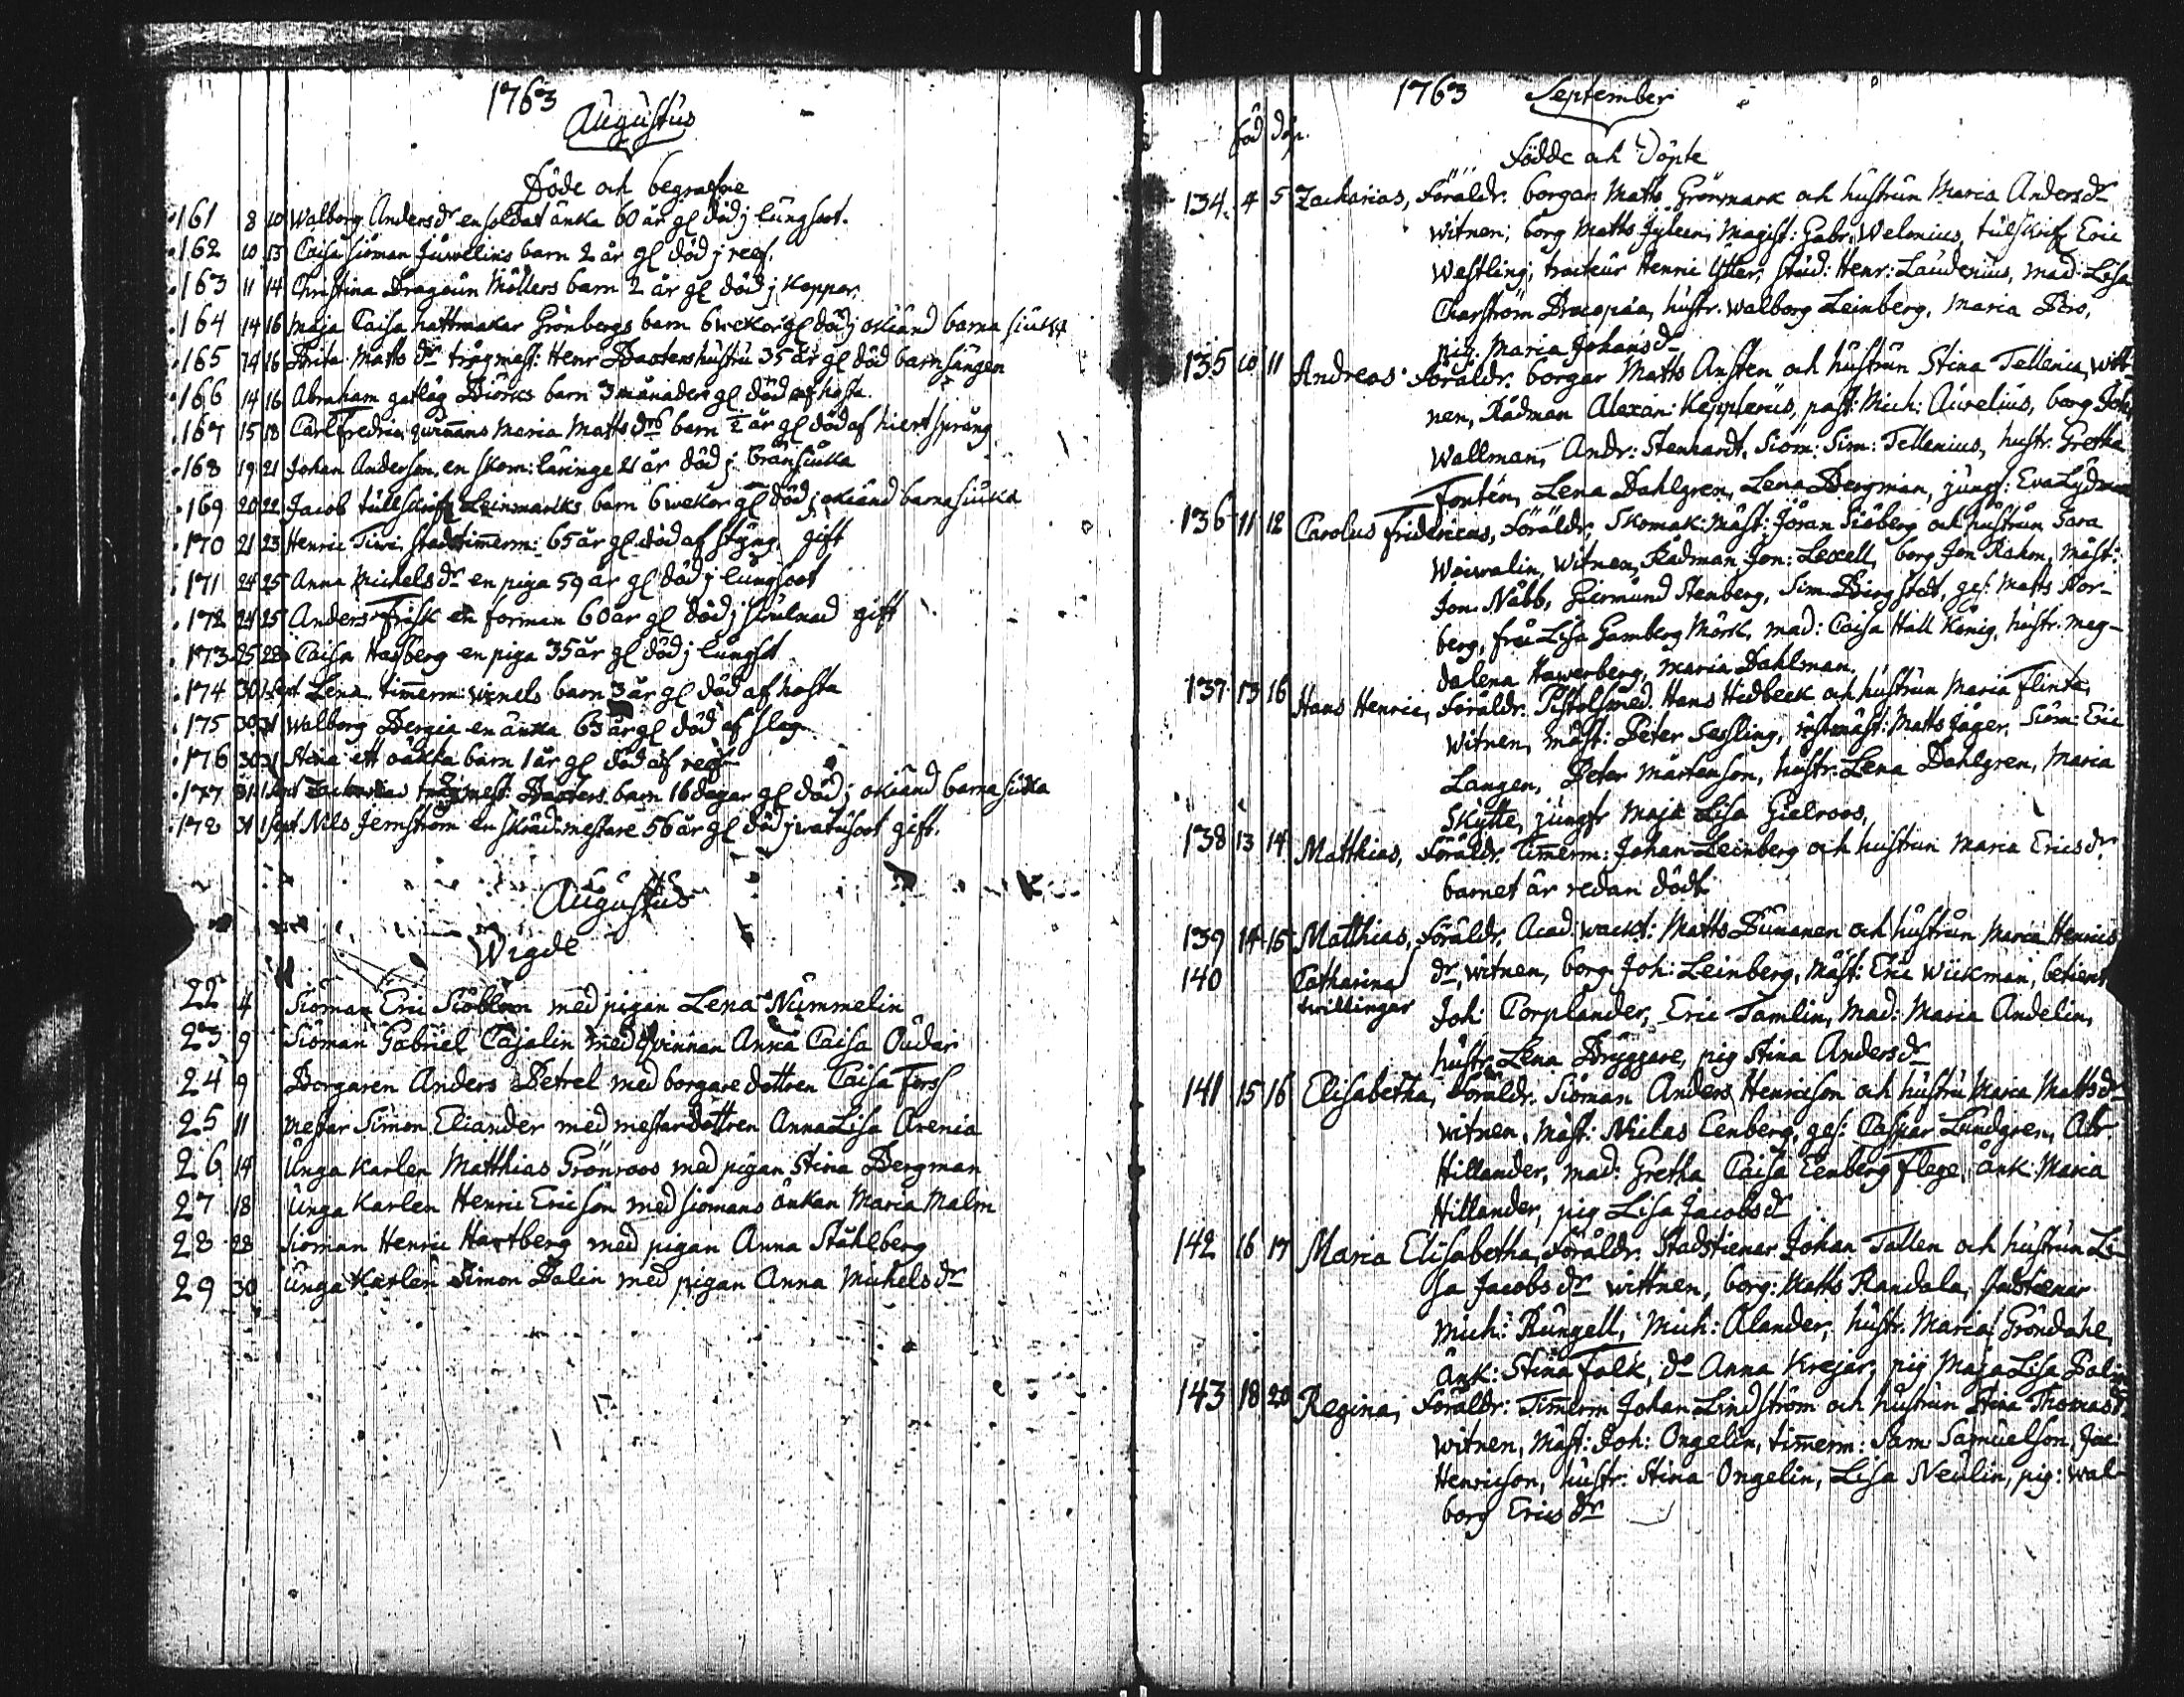 1763
Augustus
Döde och begrafne
161 8 10 Walborg Anders dr en soldat änka 60 år gl död j lungsoot.
162 10 13 Caisa siöman Juwelins barn 2 år gl död j reef.
163 11 14 Christina Dragoun Möllers barn 2 år gl död j Koppor.
164 14 16 Maja Caisa hattmakar Grönbergs barn 6 wekor gl död j okiänd barna siuka
165 14 16 Brita Matts dr Henr Baxters hustru 35 år gl död barnsängen
166 14 16 Abraham Biörks barn 3 månader gl död af hosta.
167 15 18 Carl Fredric, qwinnans Maria Matts drs barn ½ år gl död af hiertsprång
168 19 21 Johan Anderson, en skom: läringe 21 år död j bränsiuka
169 20 22 Jacob tullskrif Leinmarks barn 6 wekor gl död j okiänd barnasiuka
170 21 23 Henric Tiwi stadstimerm: 65 år gl död af styng gift
171 24 25 Anna Michels dr en piga 59 år gl död j lungsoot
172 24 25 Anders Frisk en forman 60 år gl död j swulnad gift
173 25 28 Caisa Hasberg en piga 35 år gl död j lungsot
174 30 1 sept Lena timerm: barn 3 år gl död af hosta
175 30 31 Walborg Bergia en änka 63 år gl död af slag
176 30 31 Stina ett oäkta barn 1 år gl död af reef
177 31 1 sept Zacharias Baxters barn 16 dagar gl död j okiänd barna siuka
178 31 1 sept Nils Jernström en skräd:mestare 56 år gl död j watusoot gift.
Augustus
Wigde
22 4 Siöman Eric Siöblom med pigan Lena Nummelin
23 9 Siöman Gabriel Cajalin med qvinnan Anna Caisa Oudar
24 9 Borgaren Anders Betrel med borgare dottren Caisa Forss
25 11 Mestar Simon Eliander med mestardottren Anna Lisa Arenia
26 14 Unga Karlen Matthias Grönroos med pigan Stina Bergman
27 18 Unga Karlen Henric Ericson med siömans änkan Maria Malm
28 28 Siöman Henric Hartberg med pigan Anna Ståhlberg
29 30 Unga Karlen Simon Dalin med pigan Anna Michels dr
1763 September
föd döp.
Födde och Döpte
134 4 5 Zacharias, Föräldr. borgar Matts Grönmark och hustrun Maria Anders dr
witnen; borg Matts Magist: Gabr. Welonius, tulskrif Eric
Westling, tracteur Henric stud: Henr: Laudenius, mad: Lisa
Charström Pracopæa, hustr. Walborg Leinberg, Maria
pig. Maria Johans dr
135 10 11 Andreas Föräldr. borgar Matts Ansten och hustrun Stina Tellenia, witt
nen, Rådman Alexan: Kepplerus, past: Mich: Aurelius, borg Joh
Wallman, Andr: Stenhardt, Siöm: Sim: Tellenius, hustr. Gretha
Fontén, Lena Dahlgren, Lena Bergman, jungf: Eva Lydman
136 11 12 Carolus Fridericus, Föräldr, Skomak:mäst: Jöran Siöberg och hustrun Sara
Woiwalin, witnen, Rådman Jon: Lexell, borg Jon Rahm, mäst:
Jon Nabb, Giermund Stenberg, Sim Bergstedt, ges: Matts Nor-
berg, fru Lisa Gamberg Mörk, mad: Caisa Hall König, hustr. Mag-
dalena Hawerberg, Maria Dahlman.
137 13 16 Hans Henric, Föräldr. Pistolsmed. Hans Hidbeck och hustrun Maria Flinta,
witnen, mäst: Peter Sessling, Matts Jäger, Siöm: Eric
Langen, Peter Mårtenson, hustr. Lena Dahlgren, Maria
Skytte, jungfr Maja Lisa Gielroos,
138 13 14 Matthias, Föräldr. Timerm: Johan Leinberg och hustrun Maria Erics dr
barnet är redan dödt
139 14 15 Matthias, Föräldr. Acad: wackt: Matts Bumanen och hustrun Maria Henrics
140 Catharina dr, witnen, borg. Joh: Leinberg, mäst: Eric Wiikman, betient
twillingar Joh: Torplander, Eric Tamlin, Mad: Maria Andelin,
hustr Lena Bryggare, pig Stina Anders dr
141 15 16 Elisabetha, Föräldr. Siöman Anders Henricson och hustru Maria Matts dr
witnen, mäst: Niclas Eenberg, ges: Caspar Lundgren, Abr.
Hillander, mad: Gretha Caisa Eenberg Flege, änk: Maria
Hillander, pig Lisa Jacobs dr
142 16 17 Maria Elisabetha, Föräldr. Stadstienar Johan Tallen och hustrun Li
sa Jacobs dr wittnen, borg: Matts Randala, stadstienar
Mich: Rungell, Mich: Alander, hustr. Maria Gröndahl,
Änk: Stina Falk, do Anna Krejar, pig Maja Lisa Dalin
143 18 20 Regina, Föräldr: Timerm Johan Lindström och hustrun Stina Thomas dr
witnen, mäst: Joh: Ongelin, timerm: Sam: Samuelson, Jac
Henricson, hustr: Stina Ongelin, Lisa Neulin, pig: Wal-
borg Erics dr